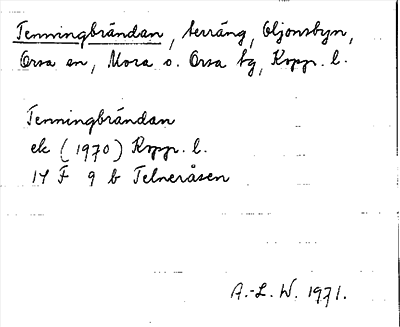 Tenningbrändan, terräng, Oljonsbyn,
Orsa sn, Mora o. Orsa tg, Kopp. l.
Tenningbrändan
ek (1970) Kopp. l.
14 F 9 b Telneråsen
A.-L. W. 1971.